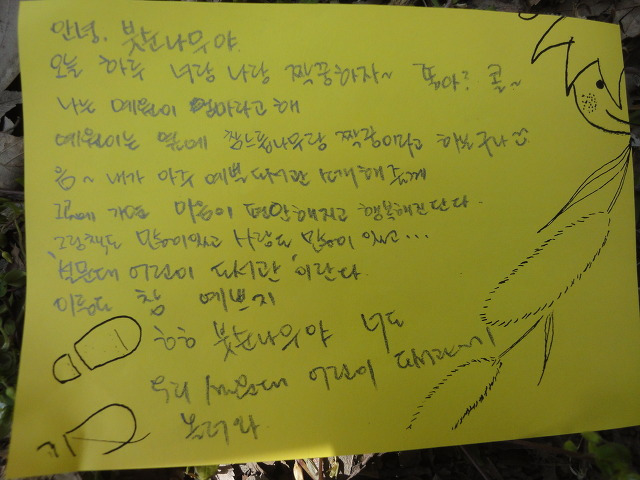 안녕. 붓순나무야.
오늘 하루 너랑 나랑 짝꿍하자~ 좋아? 콜~
나는 예원이 엄마라고 해
예원이는 옆에 참느릅나무랑 짝꿍이라고 하는구나
음~ 내가 아주 예쁜 도서관 소개해 줄께
그곳에 가면 마음이 편안해지고 행복해진단다.
그림책도 많이있고 사람도 많이 있고...
'범물대 어린이 도서관' 이란다
이름도 참 예쁘지
흐흐 붓순나무야 너도
우리 어린이 도서관
놀러와